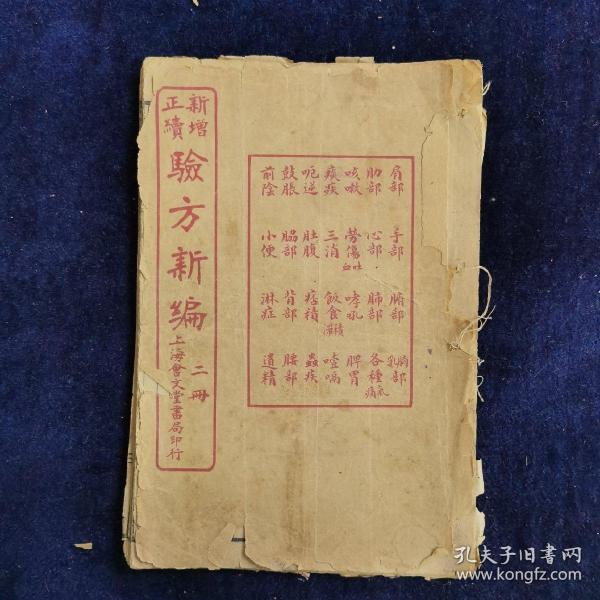 新增
正續
驗方新編
二冊
上海會文堂書局印行
肩部 手部 腑部 胸乳部
肋部 心部 肺部 各種氣痛
咳嗽 勞傷吐血 哮吼 脾胃
痰疾 三消 飲食 噎嗝
呃逆 肚腹 痞積 蟲疾
鼓脹 脇部 背部 腰部
前陰 小便 淋症 遺精
孔夫子旧书网
www.kongfz.com